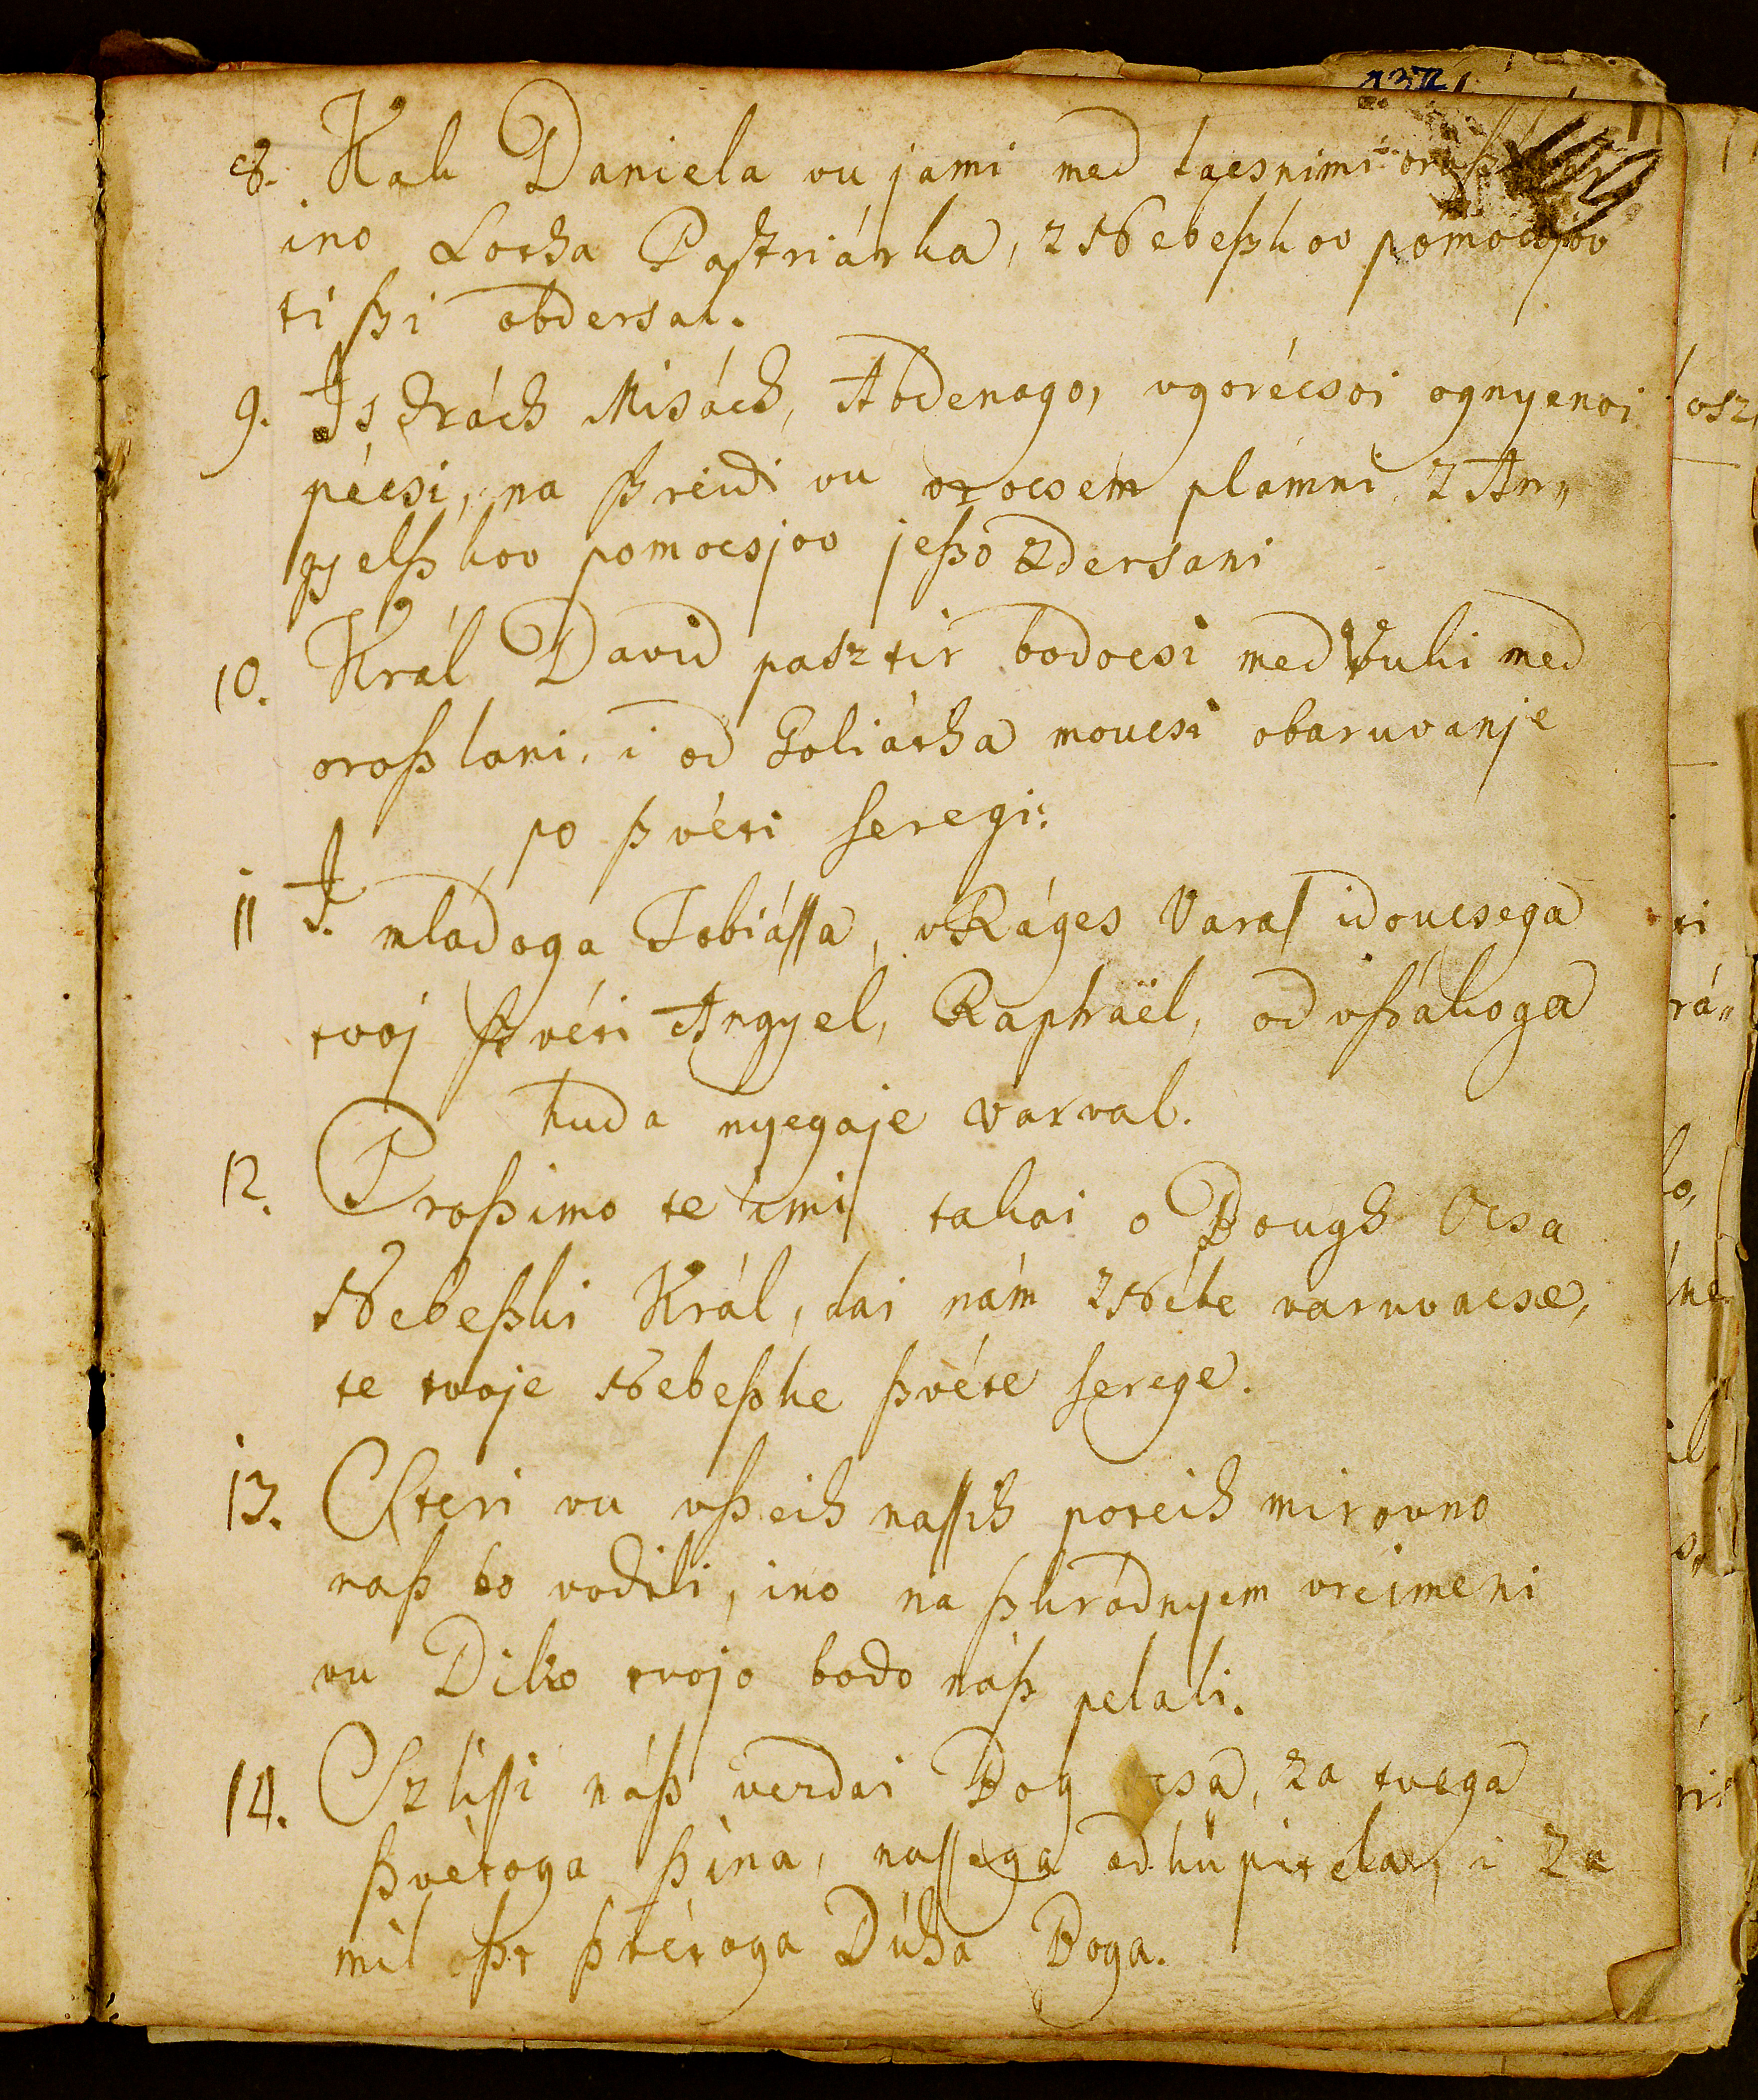 8. Kak Daniela vu jami med lacsnimi
ino Lotha Patriárka, z Nebeßkov pomocsjov
ti ßi obdersal.
9. I Sidrách Misách, Abdenago, vgorécsoi ognyenoi
pécsi, na ßreidi vu vrocsem plámni z An„
gyelßkov pomocsjov jeßo zdersani
10. Král David pasztir bodocsi med vuki med
oroßlani, i od Goliátha moucsi obaruvanje
po ßvéti seregi:
11 I. mládoga Tobiássa, v Ráges Varas idoucsega
tvoj ßvéti Angyel, Raphaël, od vßákoga
huda nyegaje varval.
12. Proßimo te i mi takai o Bough Ocsa
Nebeßki Král, dai nám z Nébe varuvacse,
te tvoje Nebeßke ßvéte serege.
13. Steri vu vßeih nassih poteih mirovno
naß bo vodili, ino na ßkradnyem vreimeni
vu Diko tvojo bodo náß pelali.
14. Szlissi náß verdai Bog za tvega
ßvétoga ßina, nassega odküpitela, i za
miloßt ßvétoga Dúha Boga.